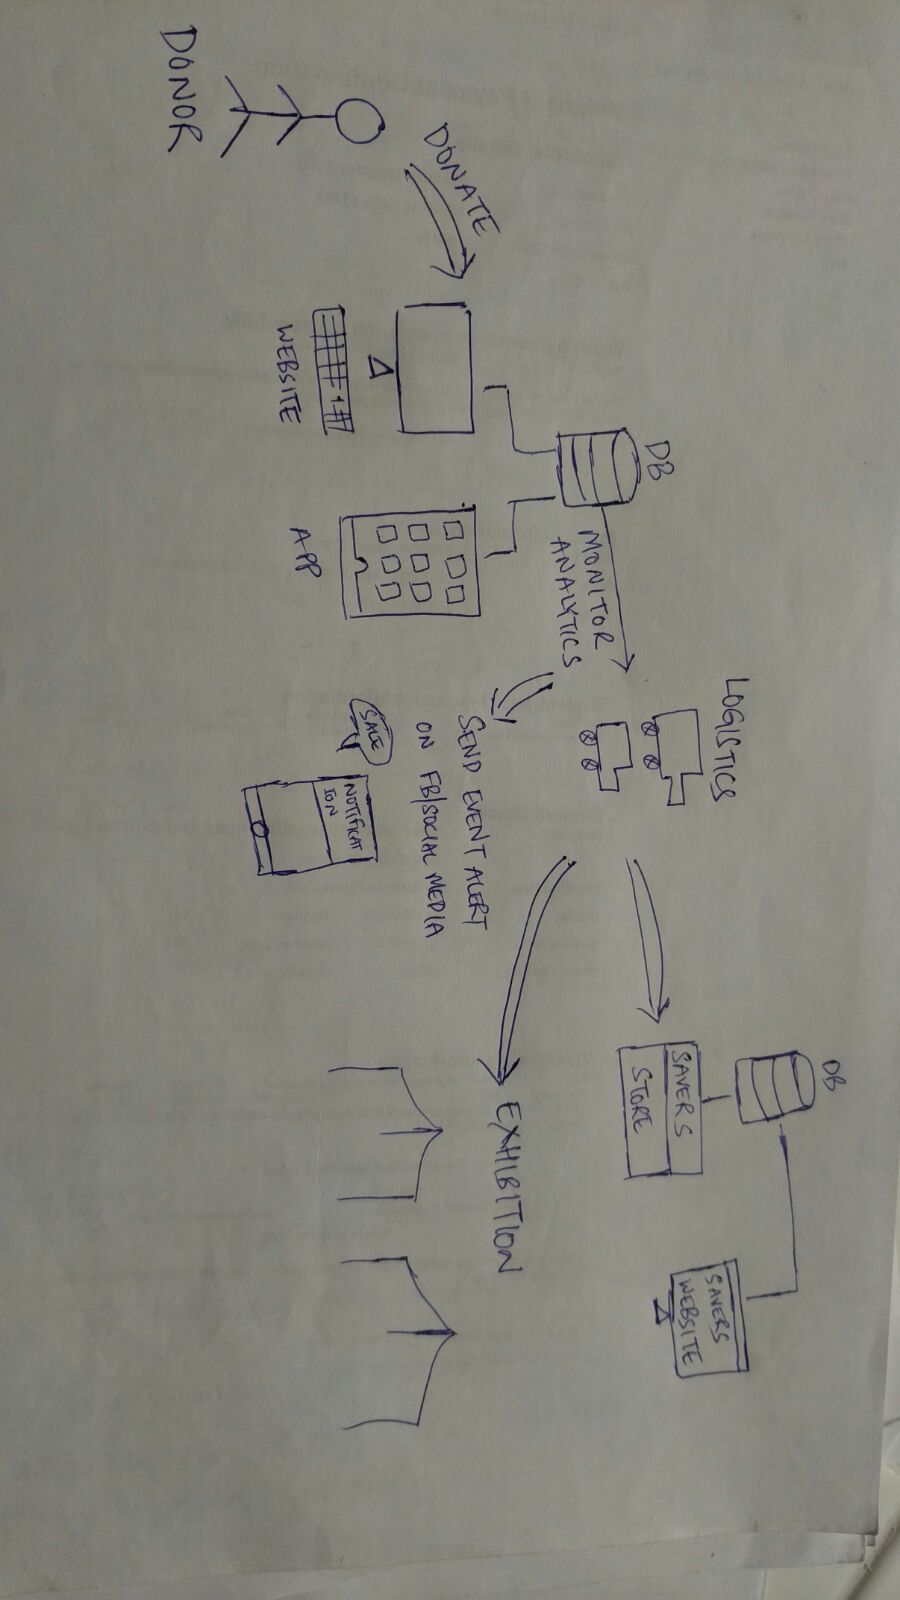 DONOR
DONATE
WEBSITE
APP
DB
MONITOR
ANALYTICS
LOGISTICS
SEND EVENT ALERT
ON FB/SOCIAL MEDIA
SALE
NOTIFICAT
ION
EXHIBITION
SAVERS
STORE
DB
SAVERS
WEBSITE